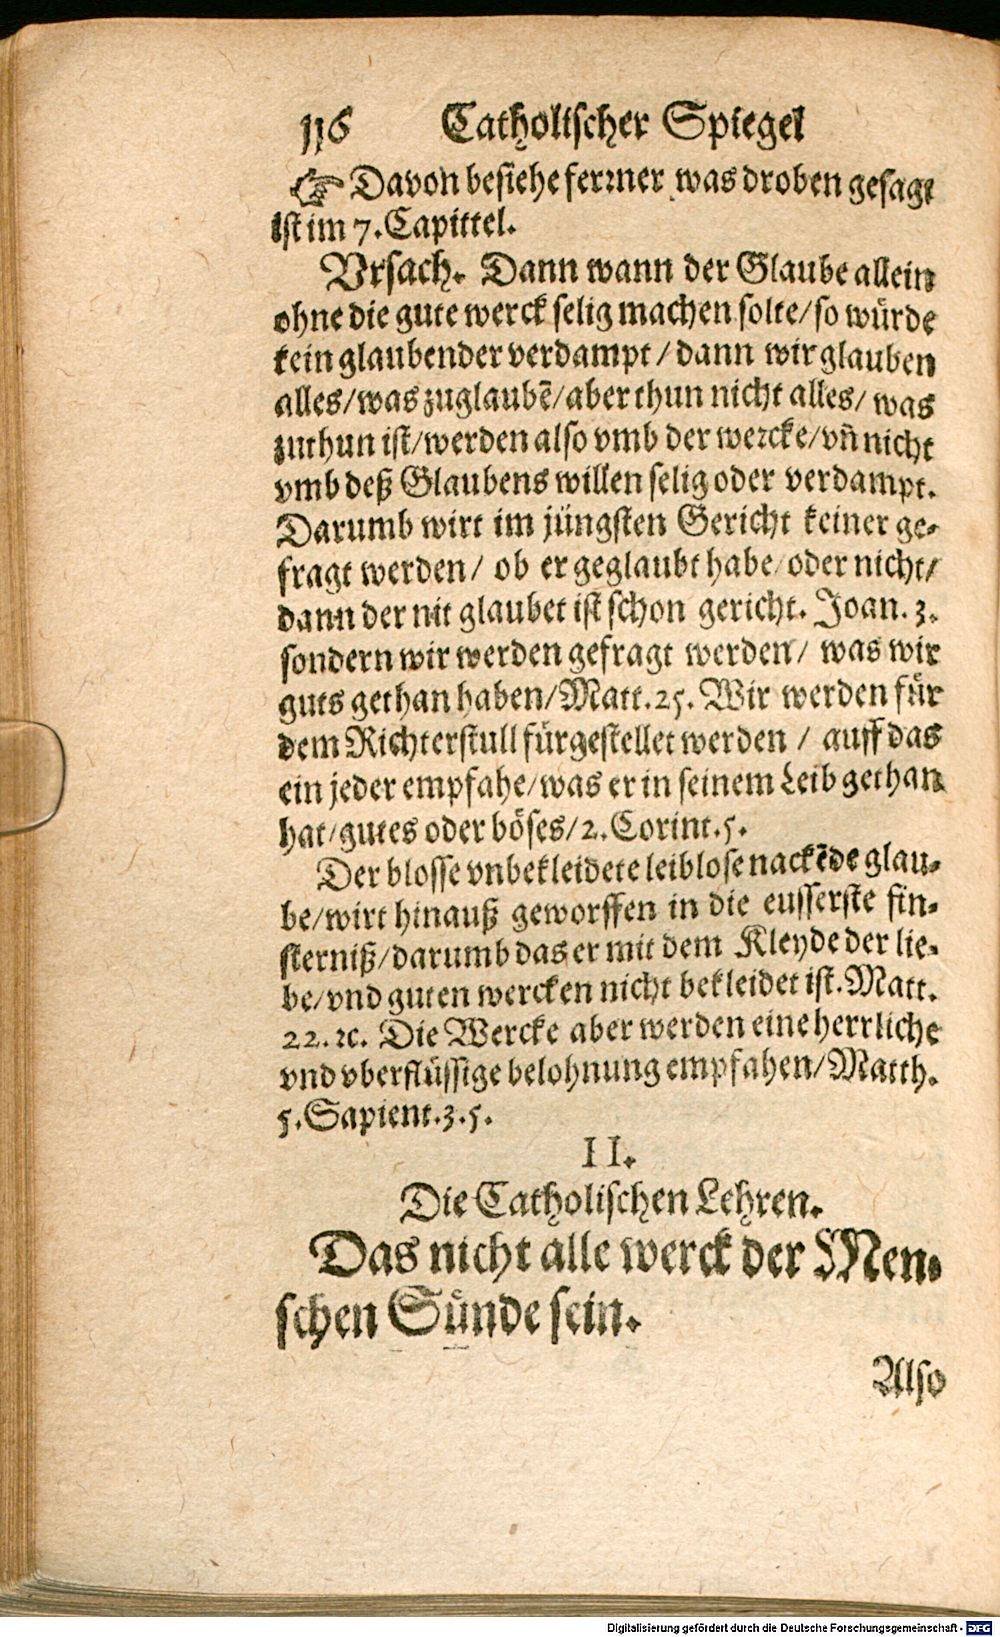 116 Catholischer Spiegel
☞ Davon besiehe ferꝛner was droben gesagt
ist im 7. Capittel.
Vrsach. Dann wann der Glaube allein
ohne die gute werck selig machen solte/ so würde
kein glaubender verdampt / dann wir glauben
alles/ was zuglaubē/ aber thun nicht alles/ was
zuthun ist/ werden also vmb der weꝛcke/ vñ nicht
vmb deß Glaubens willen selig oder verdampt.
Darumb wirt im jüngsten Gericht keiner ge-
fragt werden/ ob er geglaubt habe/ oder nicht/
dann der nit glaubet ist schon gericht. Joan. 3.
sondern wir werden gefragt werden/ was wir
guts gethan haben/ Matt. 25. Wir werden für
dem Richterstull fürgestellet werden / auff das
ein jeder empfahe/ was er in seinem Leib gethan
hat/ gutes oder böses/ 2. Corint. 5.
Der blosse vnbekleidete leiblose nackēde glau-
be/ wirt hinauß geworffen in die eusserste fin-
sterniß/ darumb das er mit dem Kleyde der lie-
be/ vnd guten wercken nicht bekleidet ist. Matt.
22. ꝛc. Die Wercke aber werden eine herrliche
vnd vberflüssige belohnung empfahen/ Matth.
5. Sapient. 3. 5.
II.
Die Catholischen Lehren.
Das nicht alle werck der Men-
schen Sünde sein.
Also
Digitalisierung gefördert durch die Deutsche Forschungsgemeinschaft - DFG